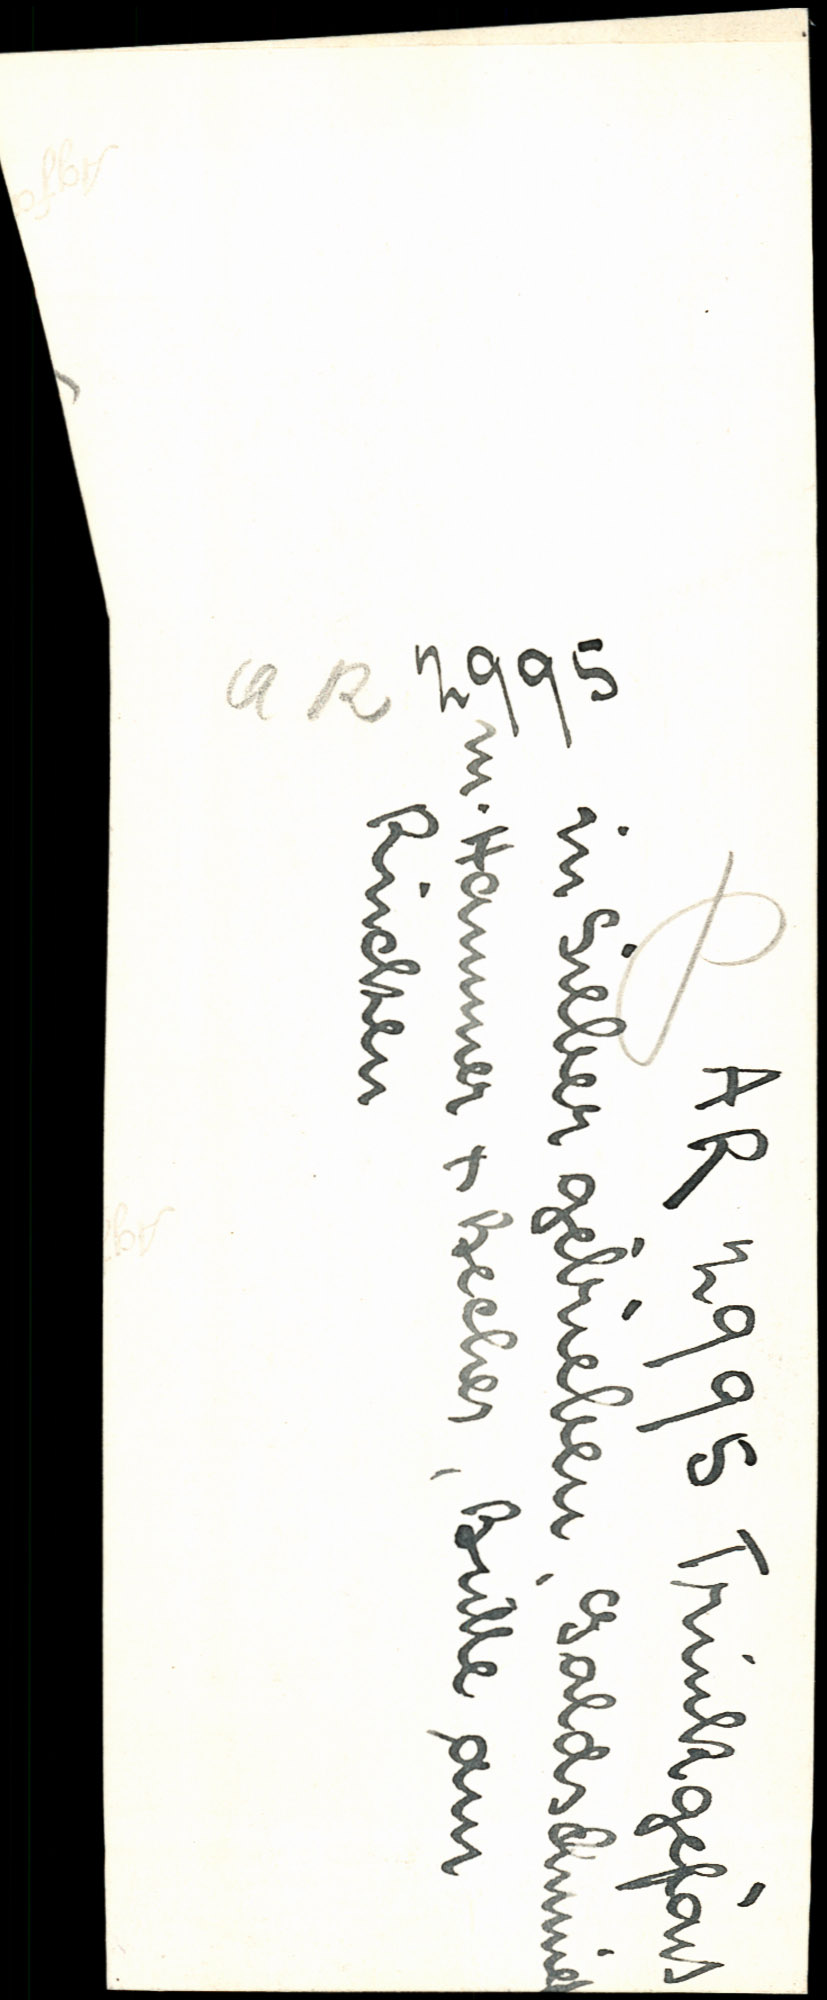 AR 4995 Trinkgefäss
in Silber getrieben, Goldschmied
m. Hammer + Becher, Brille am
Rücken
AR 4995
Agfa